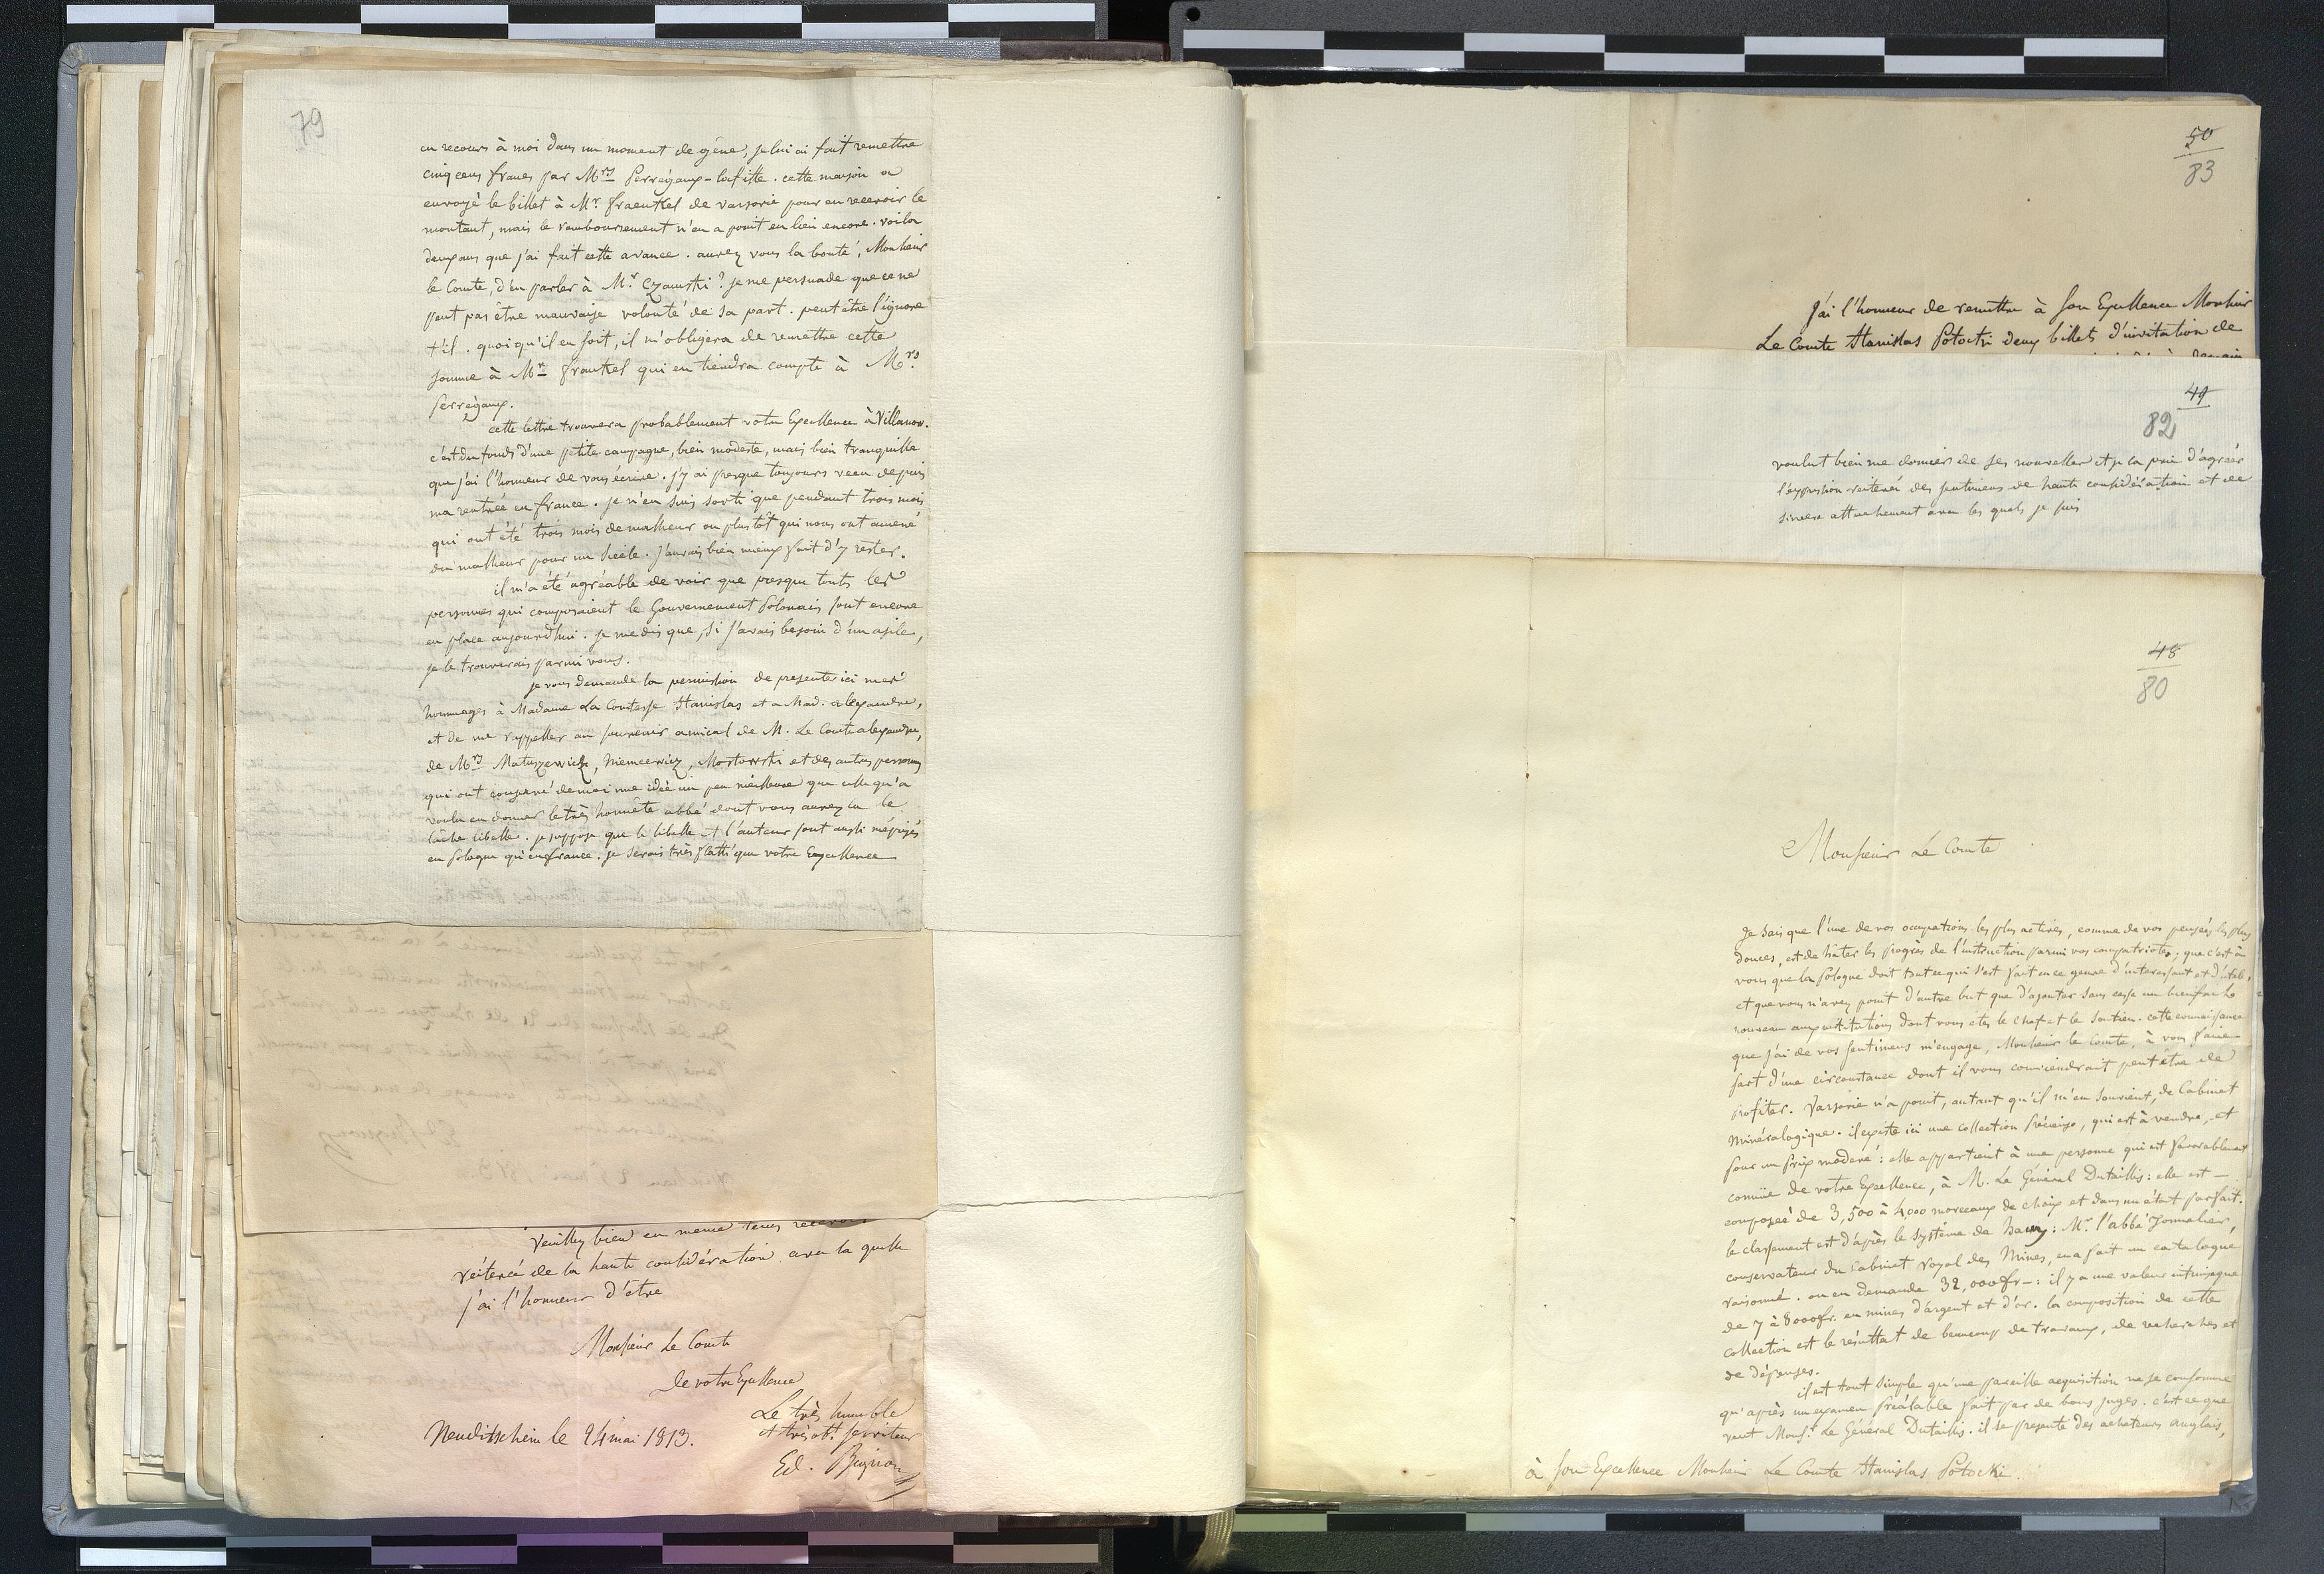 79
eu recours à moi dans un moment de gêne, je lui ai fait remettre
cinq cens francs par M.rs Perregaux-lafitte. cette maison a
envoyé le billet à M.r fraenkel de varsovie pour en recevoir le
montant, mais le remboursement n'en a point eu lieu encore. voila
deux ans que j'ai fait cette avance. aurez vous la bonté, Monsieur
le Comte, d'en parler à M.r Czamski? je me persuade que ce ne
peut pas être mauvaise volonté de sa part. peut être l'ignore
t'il. quoiqu'il en soit, il m'obligera de remettre cette
somme à M.r frankel qui en tiendra compte à M.rs
Perregaux.
cette lettre trouvera probablement votre Excellence à Villanov.
c'est du fonds d'une petite campagne, bien modeste, mais bien tranquille
que j'ai l'honneur de vous écrire. j'y ai presque toujours vecu depuis
ma rentrée en france. je n'en suis sorti que pendant trois mois
qui ont été trois mois de malheur ou plustôt qui nous ont amené
du malheur pour un siècle. j'aurais bien mieux fait d'y rester.
il m'a été agréable de voir que presque touts les
personnes qui composaient le Gouvernement Polonais sont encore
en place aujourdhui. je me dis que, si j'avais besoin d'un asile,
je le trouverais parmi vous.
je vous demande la permission de presenter ici mes
hommages à Madame La Comtesse Stanislas et a Mad. alexandre,
et de me rappeller au souvenir amical de M. Le Comte alexandre,
de M.rs Matuszewicz, Niemcewicz, Mostowski et des autres personnes
qui ont conservé de moi une idée un peu meilleure que celle qu'a
voulu en donner le très honnête abbé dont vous aurez lu le
lâche libelle. je suppose que le libelle et l'auteur sont aussi méprisés
en Pologne qu'en france. je serais très flatté que votre Excellence
Veuillez bien en meme tems recevoir
réiterée de la haute considération avec la quelle
j'ai l'honneur d'être
Monsieur Le Comte
de votre Excellence
Le très humble
et très obt. serviteur
Neuditschein le 24 mai 1813.
Ed. Bignon
50
83
J'ai l'honneur de remettre à Son Excellence Monsieur
Le Comte Stanislas Potocki deux billets d'invitation de
49
82
voulut bien me donner de ses nouvelles et je la prie d'agréer
l'expression reiterée des sentimens de haute considération et de
sincere attachement avec les quels je suis
48
80
Monsieur Le Comte
Je sais que l'une de vos occupations les plus actives, comme de vos pensées les plus
douces, est de hâter les progrès de l'instruction parmi vos compatriotes, que c'est à
vous que la Pologne doit tout ce qui s'est fait en ce genre d'interessant et d'utile,
et que vous n'avez point d'autre but que d'ajouter sans cesse un bienfait
nouveau aux institutions dont vous etes le chef et le soutien. cette connaissance
que j'ai de vos sentimens m'engage, Monsieur le Comte, à vous faire
part d'une circonstance dont il vous conviendrait peut être de
profiter. Varsovie n'a point, autant qu'il m'en souvient, de Cabinet
Minéralogique. il existe ici une collection précieuse, qui est à vendre, et
pour un prix modéré: elle appartient à une personne qui est favorablement
connue de votre Excellence, à M. Le Général Dutaillis: elle est
composée de 3,500 à 4,000 morceaux de choix et dans un état parfait.
le classement est d'après le système de hauy: M.r l'abbé Tonnelier,
conservateur du Cabinet royal des Mines, en a fait un catalogue
raisonné. on en demande 32,000 fr: il y a une valeur intrinseque
de 7 à 8000 fr. en mines d'argent et d'or. la composition de cette
collection est le résultat de beaucoup de travaux, de recherches et
de dépenses.
il est tout simple qu'une pareille acquisition ne se consomme
qu'après un examen préalable fait par de bons juges. c'est ce que
veut Mons.r Le Général Dutaillis. il se presente des acheteurs anglais,
à Son Excellence Monsieur Le Comte Stanislas Potocki.